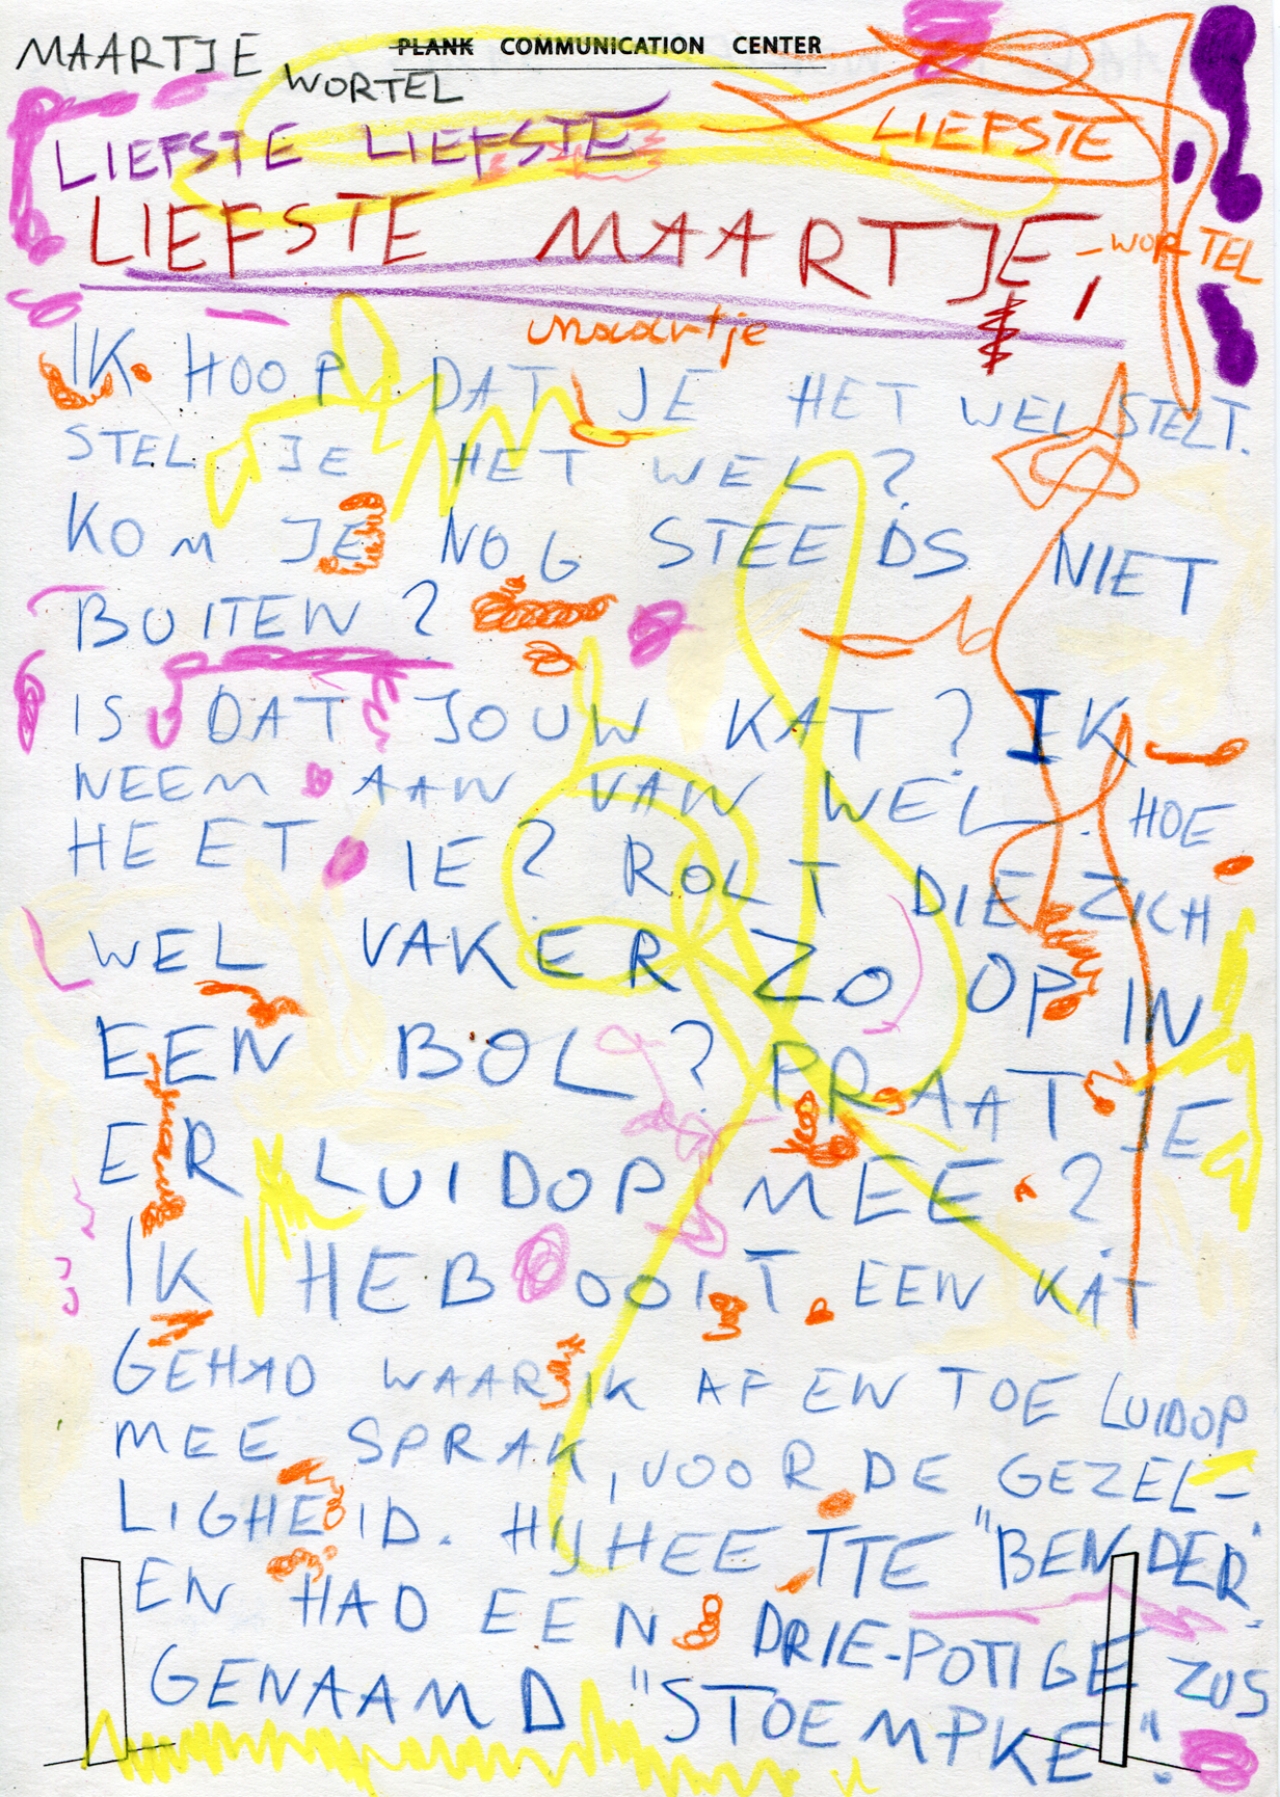 PLANK COMMUNICATION CENTER
MAARTJE
WORTEL
LIEFSTE LIEFSTE LIEFSTE
LIEFSTE MAARTJE,
-WORTEL
maartje
IK HOOP DAT JE HET WEL STELT.
STEL JE HET WEL?
KOM JE NOG STEEDS NIET
BUITEN?
IS DAT JOUW KAT? IK
NEEM AAN VAN WEL. HOE
HEET IE? ROLT DIE ZICH
WEL VAKER ZO OP IN
EEN BOL? PRAAT JE
ER LUIDOP MEE?
IK HEB OOIT EEN KAT
GEHAD WAAR IK AF EN TOE LUIDOP
MEE SPRAK, VOOR DE GEZEL-
LIGHEID. HIJ HEETTE "BENDER"
EN HAD EEN DRIE-POTIGE ZUS
GENAAMD "STOEMPKE".